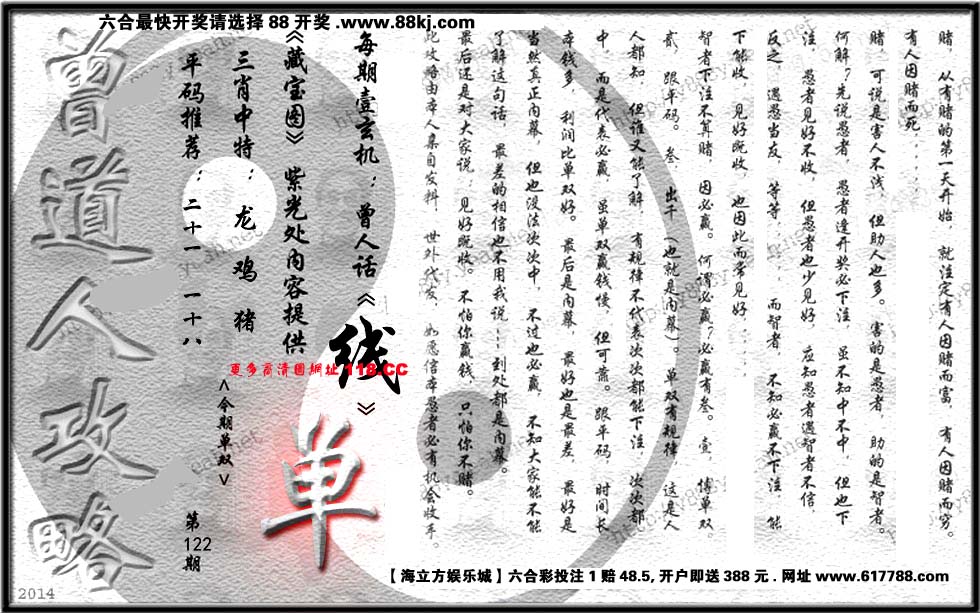 六合最快开奖请选择 88 开奖 .www.88kj.com
赌，从有赌的第一天开始，就注定有人因赌而富，有人因赌而穷。
有人因赌而死......
赌，可说是害人不浅，但助人也多。害的是愚者，助的是智者。
何解？先说愚者，愚者逢开奖必下注，虽不知中不中，但也下
注，愚者见好不收，但愚者也少见好，应知愚者遇智者不信，
反之，遇愚当友，等等......而智者，不知必赢不下注，能
下能收，见好既收，也因此而常见好......
智者下注不算赌，因必赢。何谓必赢？必赢有叁。壹，傅单双，
贰，跟平码。叁，出千（也就是内幕）。单双有规律，这是人
人都知，但谁又能了解，有规律不代表次次都能下注，次次都
中，而是代表必赢，虽单双赢钱慢，但可靠。跟平码，时间长，
本钱多，利润比单双好。最后是内幕，最好也是最差，最好是
当然真正内幕，但也没法次次中，不过也必赢，不知大家能不能
了解这句话，最差的相信也不用我说......到处都是内幕。
最后还是对大家说：见好既收。不怕你赢钱，只怕你不赌。
此攻略由本人集自发料，世外代友，如愿信本愚者必有机会收手。
每期壹玄机：曾人话《线》
《藏宝图》紫光处内容提供
三肖中特：龙 鸡 猪
平码推荐：二十一 一十八
更多高清图网址 118.CC
<今期单双>
单
第122期
曾道人攻略
【海立方娱乐城】六合彩投注 1 赔 48.5, 开户即送 388 元 . 网址 www.617788.com
2014